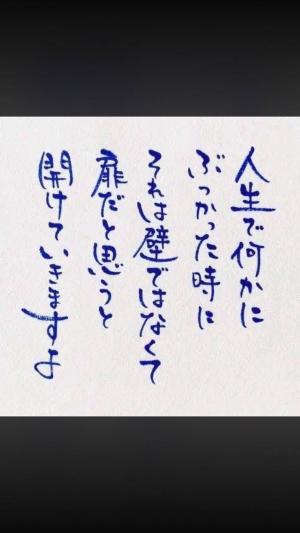 人生で何かに
ぶつかった時に
それは壁ではなくて
扉だと思うと
開けていきますよ